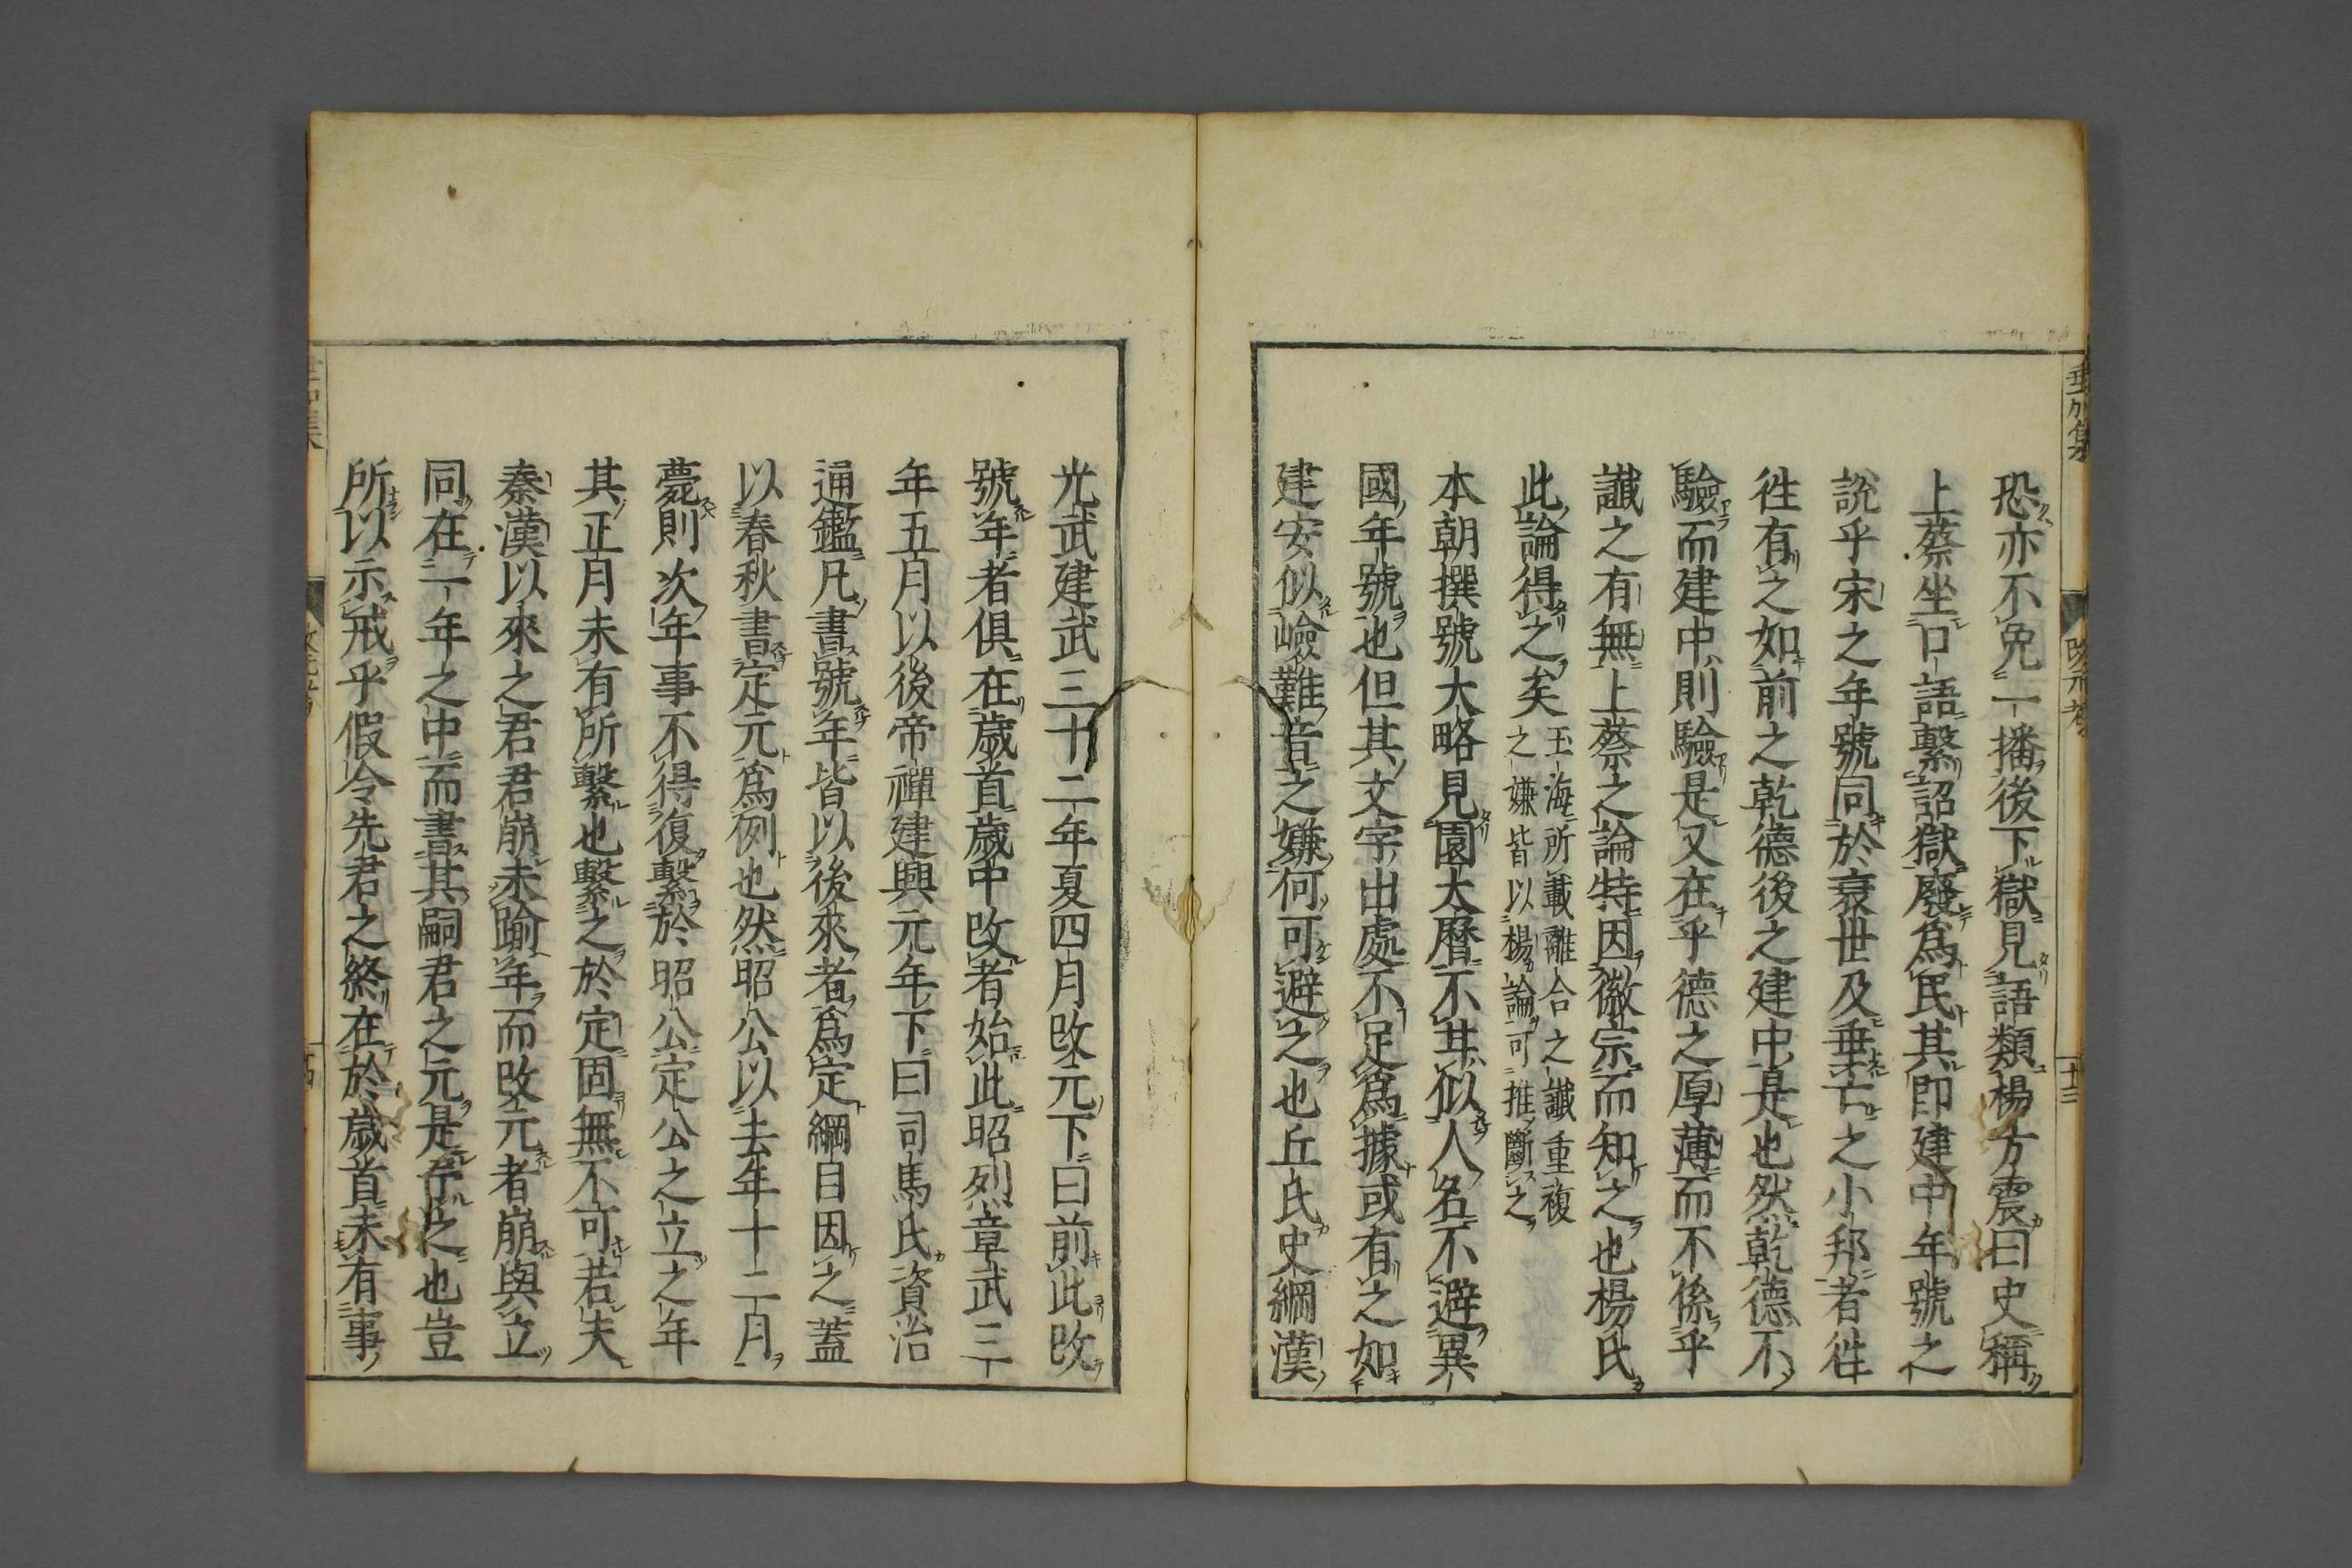 恐亦不免一播後下獄見語類楊方震曰史稱
上蔡坐口語繫詔獄廢爲民其即建中年號之
說乎宋之年號同於衰世及垂亡之小邦者徃
徃有之如前之乾德後之建中是也然乾德不
驗而建中則驗是又在乎德之厚薄而不係乎
讖之有無上蔡之論特因徽宗而知之也楊氏
此論得之矣玉海所載離合之讖重複
之嫌皆以楊論可推斷之
本朝撰號大略見園太曆不其似人名不避異
國年號也但其文字出處不足爲據或有之如
建安似嶮難音之嫌何可避之也丘氏史綱漢
垂加集
改元考
十三
光武建武三十二年夏四月改元下曰前此改
號年者俱在歲首歲中改者始此昭烈章武三
年五月以後帝禪建興元年下曰司馬氏資治
通鑑凡書號年皆以後來者爲定綱目因之蓋
以春秋書定元爲例也然昭公以去年十二月
薨則次年事不得復繫於昭公定公之立之年
其正月未有所繫也繫之於定固無不可若夫
秦漢以來之君君崩未踰年而改元者崩與立
同在一年之中而書其嗣君之元是予之也豈
所以示戒乎假令先君之終在於歲首未有事